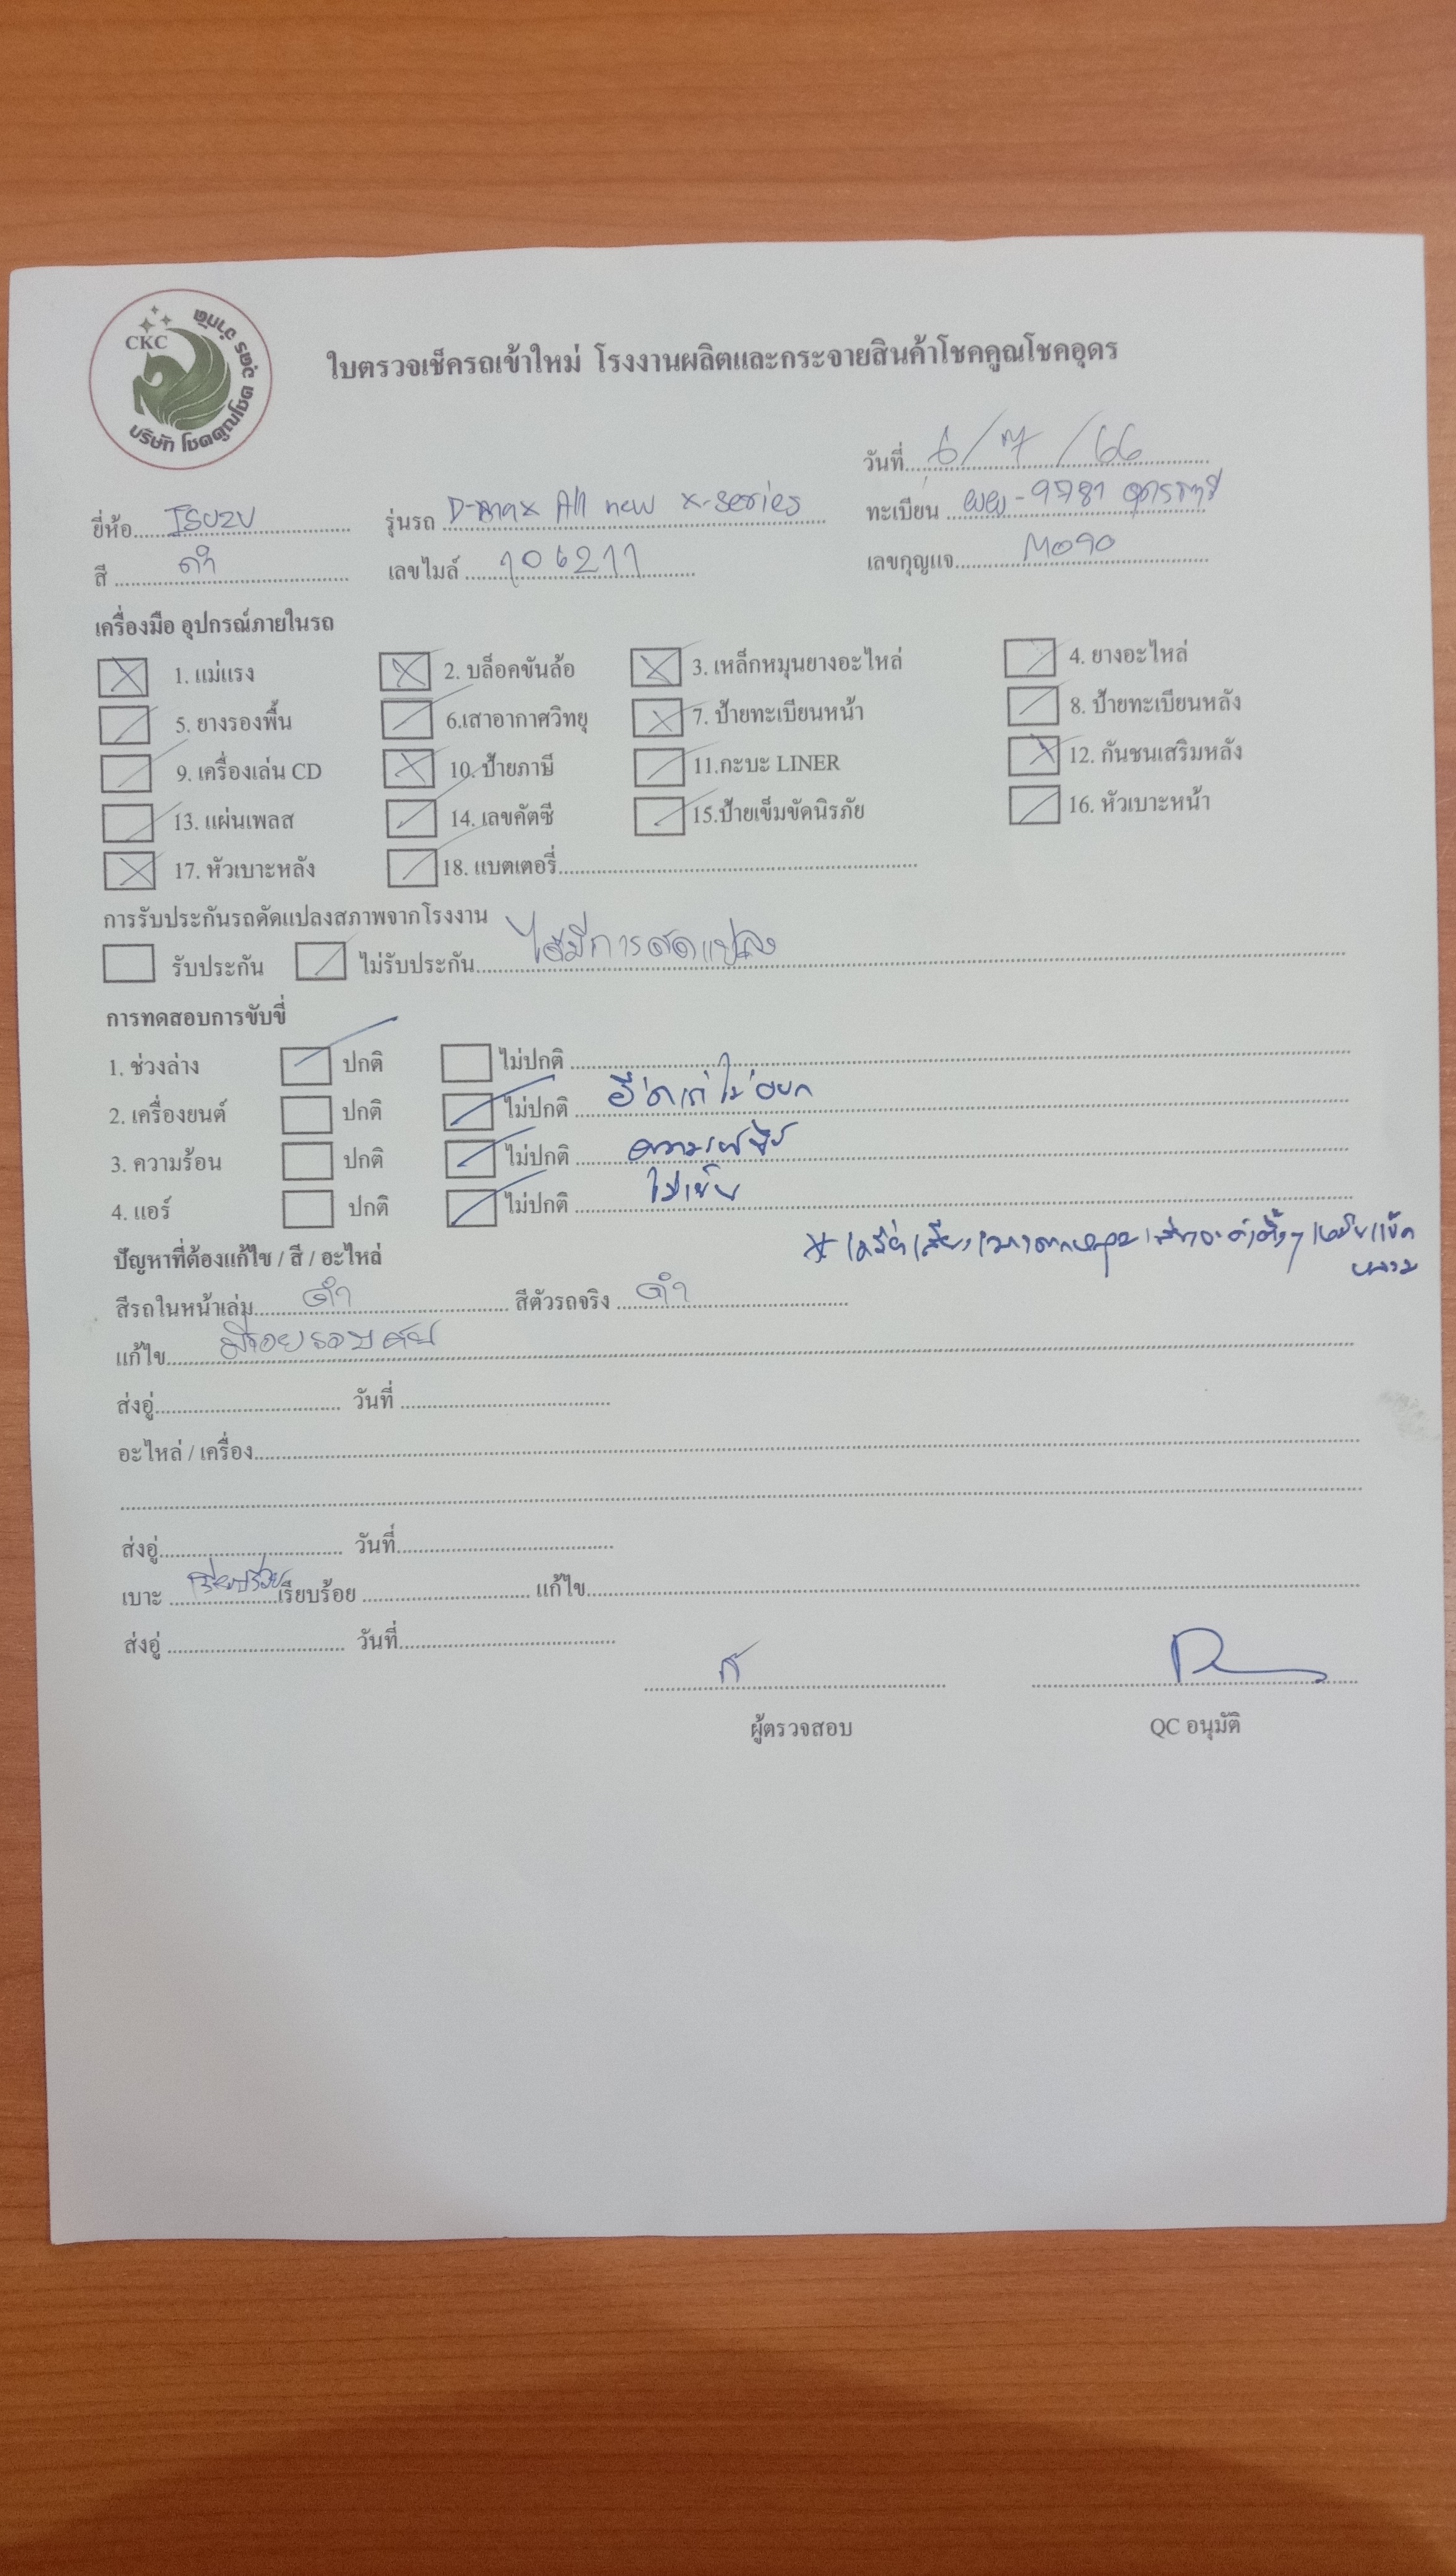 CKC
บริษัท โชคคูณโชค อุดร จำกัด
ใบตรวจเช็ครถเข้าใหม่ โรงงานผลิตและกระจายสินค้าโชคคูณโชคอุดร
วันที่ 6/7/66
ยี่ห้อ ISUZU รุ่นรถ D-max All new x-series ทะเบียน ผผ-9781 อุดรธานี
สี ดำ เลขไมล์ 106211 เลขกุญแจ M090
เครื่องมือ อุปกรณ์ภายในรถ
1. แม่แรง 2. บล็อคขันล้อ 3. เหล็กหมุนยางอะไหล่ 4. ยางอะไหล่
5. ยางรองพื้น 6.เสาอากาศวิทยุ 7. ป้ายทะเบียนหน้า 8. ป้ายทะเบียนหลัง
9. เครื่องเล่น CD 10. ป้ายภาษี 11.กะบะ LINER 12. กันชนเสริมหลัง
13. แผ่นเพลส 14. เลขคัตซี 15.ป้ายเข็มขัดนิรภัย 16. หัวเบาะหน้า
17. หัวเบาะหลัง 18. แบตเตอรี่
การรับประกันรถดัดแปลงสภาพจากโรงงาน
รับประกัน ไม่รับประกัน ได้มีการดัดแปลง
การทดสอบการขับขี่
1. ช่วงล่าง ปกติ ไม่ปกติ
2. เครื่องยนต์ ปกติ ไม่ปกติ อืดเร่งไม่ออก
3. ความร้อน ปกติ ไม่ปกติ ความร้อนขึ้น
4. แอร์ ปกติ ไม่ปกติ ไม่เย็น
ปัญหาที่ต้องแก้ไข / สี / อะไหล่
สีรถในหน้าเล่ม ดำ สีตัวรถจริง ดำ
แก้ไข มีรอยรอบคัน
ส่งอู่ วันที่
อะไหล่ / เครื่อง
ส่งอู่ วันที่
เบาะ เรียบร้อย เรียบร้อย แก้ไข
ส่งอู่ วันที่
ผู้ตรวจสอบ QC อนุมัติ